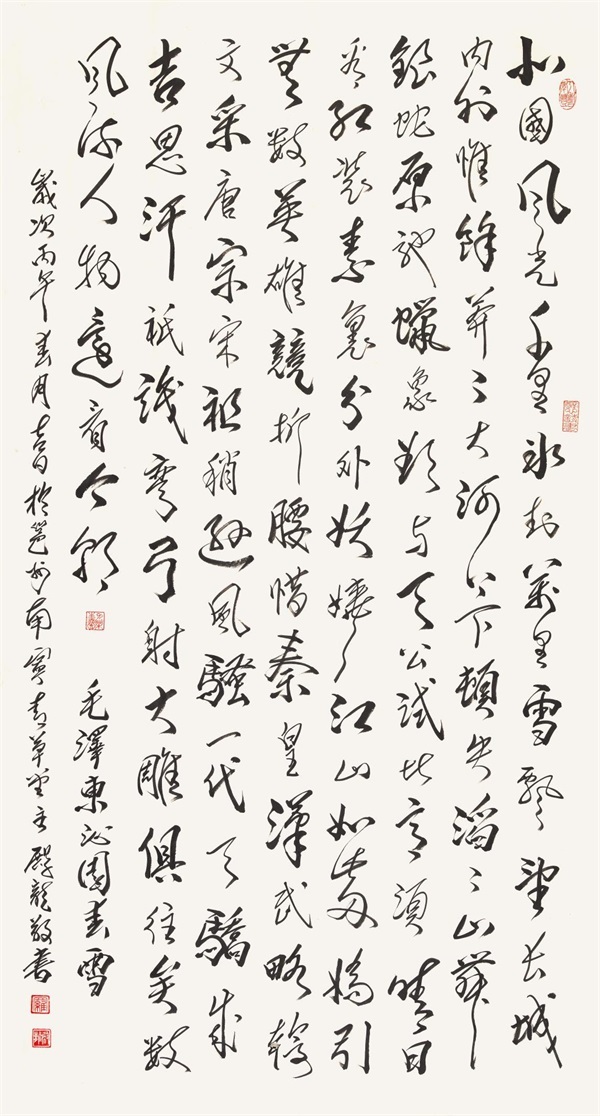 北國风光千里冰封萬里雪飄望長城
内外惟餘莽〻大河上下頓失滔〻山舞
銀蛇原馳蠟象欲与天公試比高須晴日
看紅裝素裹分外妖嬈江山如此多嬌引
無數英雄競折腰惜秦皇漢武略輸
文采唐宗宋祖稍遜風騷一代天驕成
吉思汗祇識彎弓射大雕俱往矣數
风流人物還看今朝
毛澤東沁園春雪
歲次丙午春月吉日於邕州南寧草堂主龍敬書